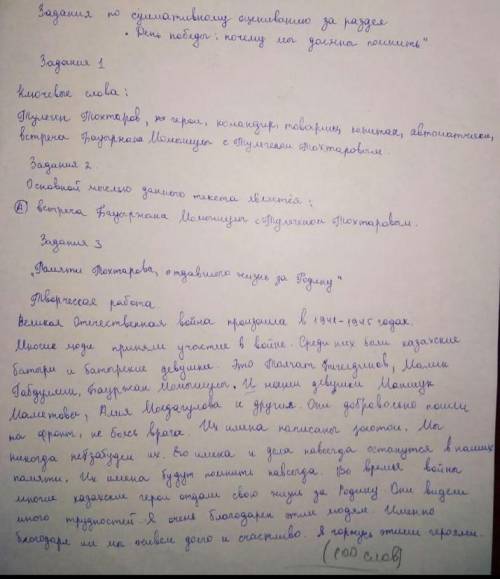 Задания по суммативному оцениванию за раздел
„День победы: почему мы должны помнить"
Задания 1
Ключевые слова:
Тулеген Тохтаров, герои, командир, товарищ, капитан, автоматчики,
встреча Бауыржана Момышулы с Тулегеном Тохтаровым.
Задания 2.
Основной мыслью данного текста является:
А) встреча Бауржана Момышулы с Тулегеном Тохтаровым.
Задания 3
„Памяти Тохтарова, отдавшего жизнь за Родину"
Творческая работа.
Великая Отечественная война произошла в 1941-1945 годах.
Многие люди приняли участие в войне. Среди них были казахские
батыри и батырские девушки. Это Талгат Бигелдинов, Малик
Габдуллин, Бауржан Момышулы. И наши девушки Маншук
Маметова, Алия Молдагулова и другия. Они добровольно пошли
на фронт, не боясь врага. Их имена написаны золотом. Мы
никогда незабудем их. Его имена и дела навсегда останутся в наших
памяти. Их имена будут помнить навсегда. Во время войны
многие казахские герои отдали свою жизнь за Родину. Они видели
много трудностей. Я очень благодарен этим людям. Именно
благодаря им мы живем долго и счастливо. Я горжусь этими героями.
(100 слов)